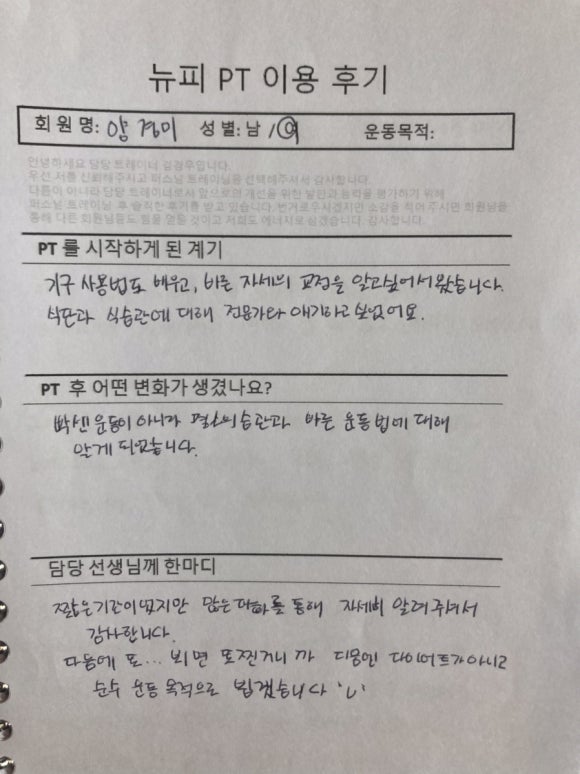 뉴피 PT 이용 후기
회 원 명: 양경미 성 별: 남 / 여 운동목적:
안녕하세요 담당 트레이너 김경우입니다.
우선 저를 신뢰해주시고 퍼스널 트레이닝을 선택해주셔서 감사합니다.
다름이 아니라 담당 트레이너로서 앞으로의 개선을 위한 발판과 능력을 평가하기 위해
퍼스널 트레이닝 후 솔직한 후기를 받고 있습니다. 번거로우시겠지만 소감을 적어 주시면 회원님을
통해 다른 회원님들도 힘을 얻을 것이고 저희도 에너지로 삼겠습니다. 감사합니다.
PT 를 시작하게 된 계기
기구 사용법도 배우고, 바른 자세의 교정을 알고싶어서 왔습니다.
식단과 식습관에 대해 전문가와 얘기하고 싶었어요.
PT 후 어떤 변화가 생겼나요?
빡센 운동이 아니라 평소의 습관과 바른 운동법에 대해
알게 되었습니다.
담당 선생님께 한마디
짧은기간이었지만 많은대화를 통해 자세히 알려주셔서
감사합니다.
다음에 또... 뵈면 또찐거니까 디몽인 다이어트가아니고
순수 운동 목적으로 뵙겠습니다 'ᴗ'